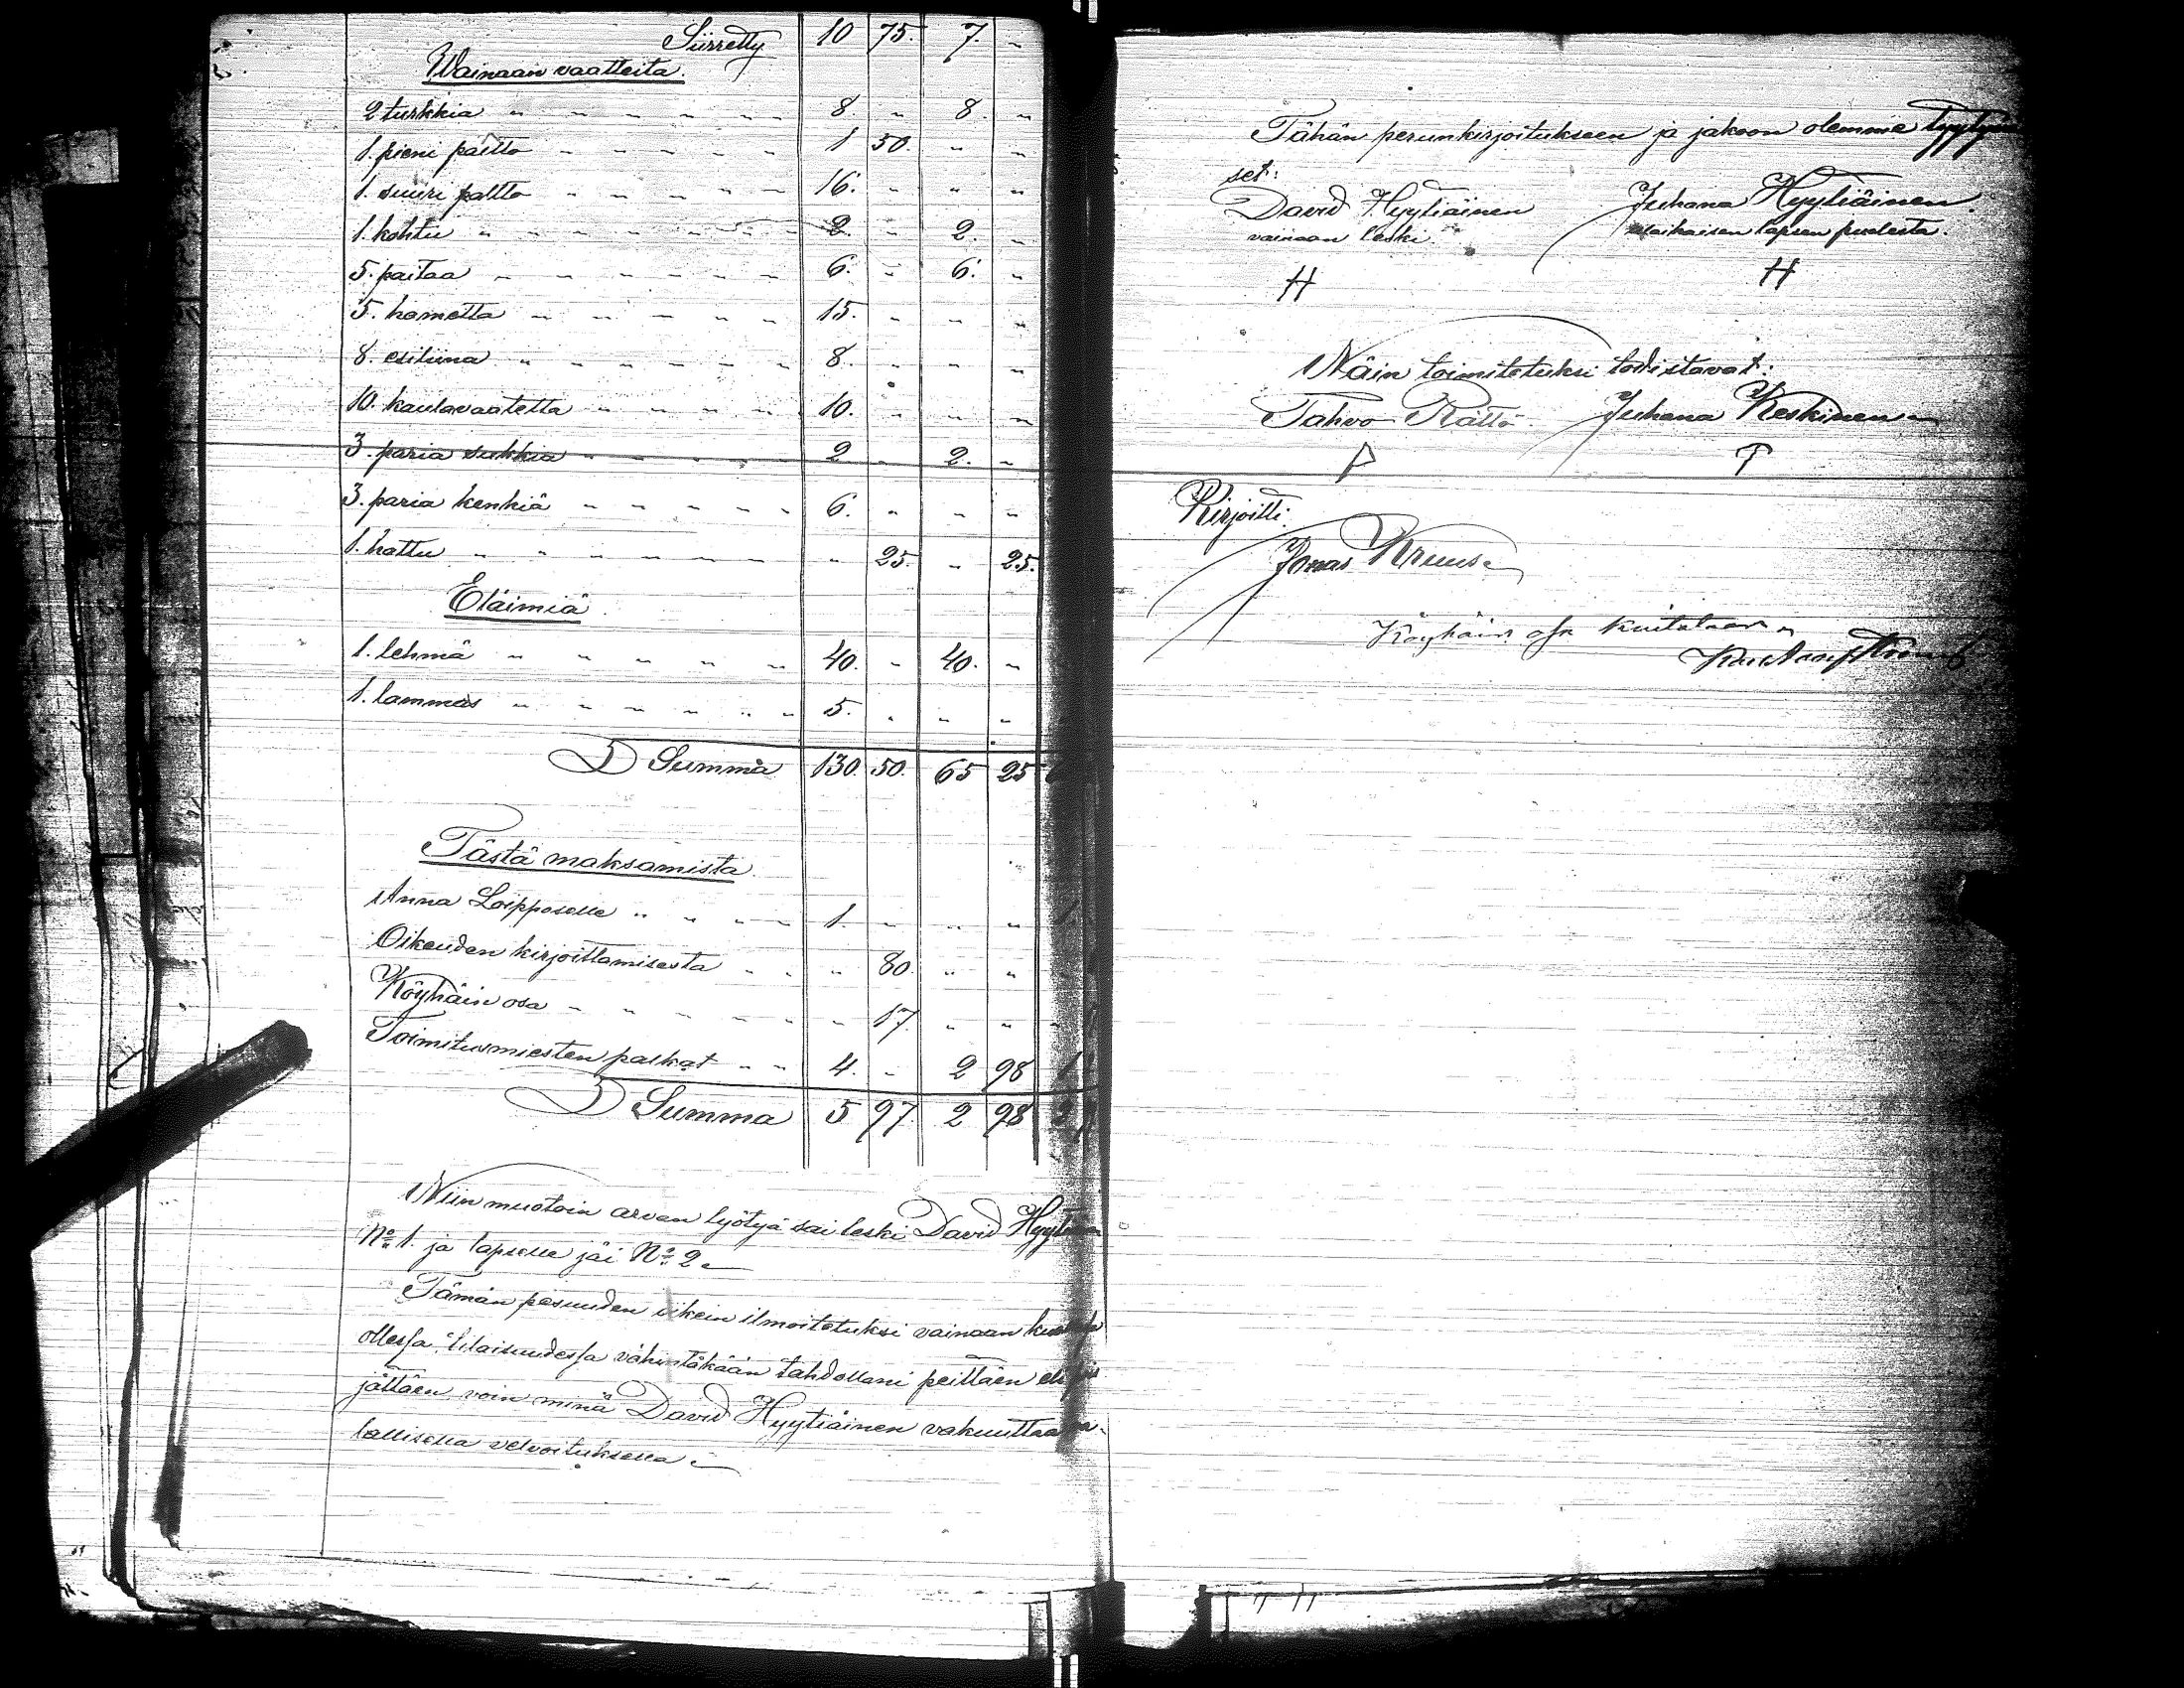 Siirretty 10 75. 7. "
Wainaan vaatteita.
2 turkkia " " " " " " 8. " 8. "
1. pieni paltto " " " " " 1 50. " "
1. suuri paltto " " " " " 16. " " "
1. kohtu " " " " " " 2. " 2. "
5. paitaa " " " " " " 6. " 6. "
5. hametta " " " " " 15. " " "
8. esiliina " " " " " " 8. " " "
10. kaulavaatetta " " " " 10. " " "
3. paria sukkia " " " " 2 " 2. "
3. paria kenkiä " " " " " 6. " " "
1. hattu " " " " " " " 25. " 25.
Eläimiä.
1. lehmä " " " " " " 40. " 40. "
1. lammas " " " " " " 5. " " "
Summa 130. 50. 65 25
Tästä maksamista.
Anna Loipposelle " " " " 1. " " "
Oikeuden kirjoittamisesta " " " 80. " "
Köyhäin osa " " " " " " 17. " " "
Toimitusmiesten palkat " " 4. " 2 98 1
Summa 5 97. 2 98 2
Niin muotoin arvan lyötyä sai leski David
No 1. ja lapselle jäi No 2.
Tämän pesuuden oikein ilmoitetuksi vainaan
ollessa tilaisuudessa vähintäkään tahdollani peittäen
jättäen voin minä David Hyytiäinen vakuuttaa
lallisella velvoituksella.
Tähän perunkirjoitukseen ja jakoon olemme
set:
David Hyytiäinen Juhana Hyytiäinen.
vainaan leski. alaikaisen lapsen puolesta.
H H
Näin toimitetuksi todistavat:
Tahvo Rättö. Juhana Keskinen
Kirjoitti.
Jonas Kruus.
Köyhäin osa kuitataan